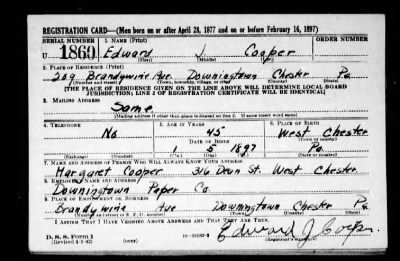 REGISTRATION CARD—(Men born on or after April 28, 1877 and on or before February 16, 1897)
SERIAL NUMBER 1. NAME (Print) ORDER NUMBER
U 1860 Edward J. Cooper
(First) (Middle) (Last)
2. PLACE OF RESIDENCE (Print)
209 Brandywine Ave. Downingtown Chester Pa
(Number and street) (Town, township, village, or city) (County) (State)
[THE PLACE OF RESIDENCE GIVEN ON THE LINE ABOVE WILL DETERMINE LOCAL BOARD
JURISDICTION; LINE 2 OF REGISTRATION CERTIFICATE WILL BE IDENTICAL]
3. MAILING ADDRESS
Same
[Mailing address if other than place indicated on line 2. If same insert word same]
4. TELEPHONE 5. AGE IN YEARS 6. PLACE OF BIRTH
No 45 West Chester
DATE OF BIRTH (Town or county)
1 5 1897 Pa.
(Exchange) (Number) (Mo.) (Day) (Yr.) (State or country)
7. NAME AND ADDRESS OF PERSON WHO WILL ALWAYS KNOW YOUR ADDRESS
Margaret Cooper 316 St. West Chester
8. EMPLOYER'S NAME AND ADDRESS
Downingtown Paper Co.
9. PLACE OF EMPLOYMENT OR BUSINESS
Brandywine Ave Downingtown Chester Pa
(Number and street or R. F. D. number) (Town) (County) (State)
I AFFIRM THAT I HAVE VERIFIED ABOVE ANSWERS AND THAT THEY ARE TRUE.
D. S. S. FORM 1
(Revised 4-1-42) (over) Edward J Cooper
(Registrant's signature)